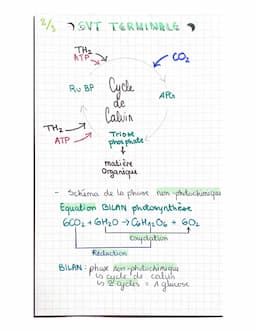 2/3 SVT TERMINALE
TH2
ATP
CO2
RuBP
Cycle
de
Calvin
APG
TH2
ATP
Triose
phosphate
matière
Organique
- Schéma de la phase non-photochimique
Equation BILAN photosynthèse
6CO2 + 6H2O → C6H12O6 + 6O2
Oxydation
Réduction
BILAN : phase non-photochimique
↳ cycle de calvin
↳ 2 cycles = 1 glucose